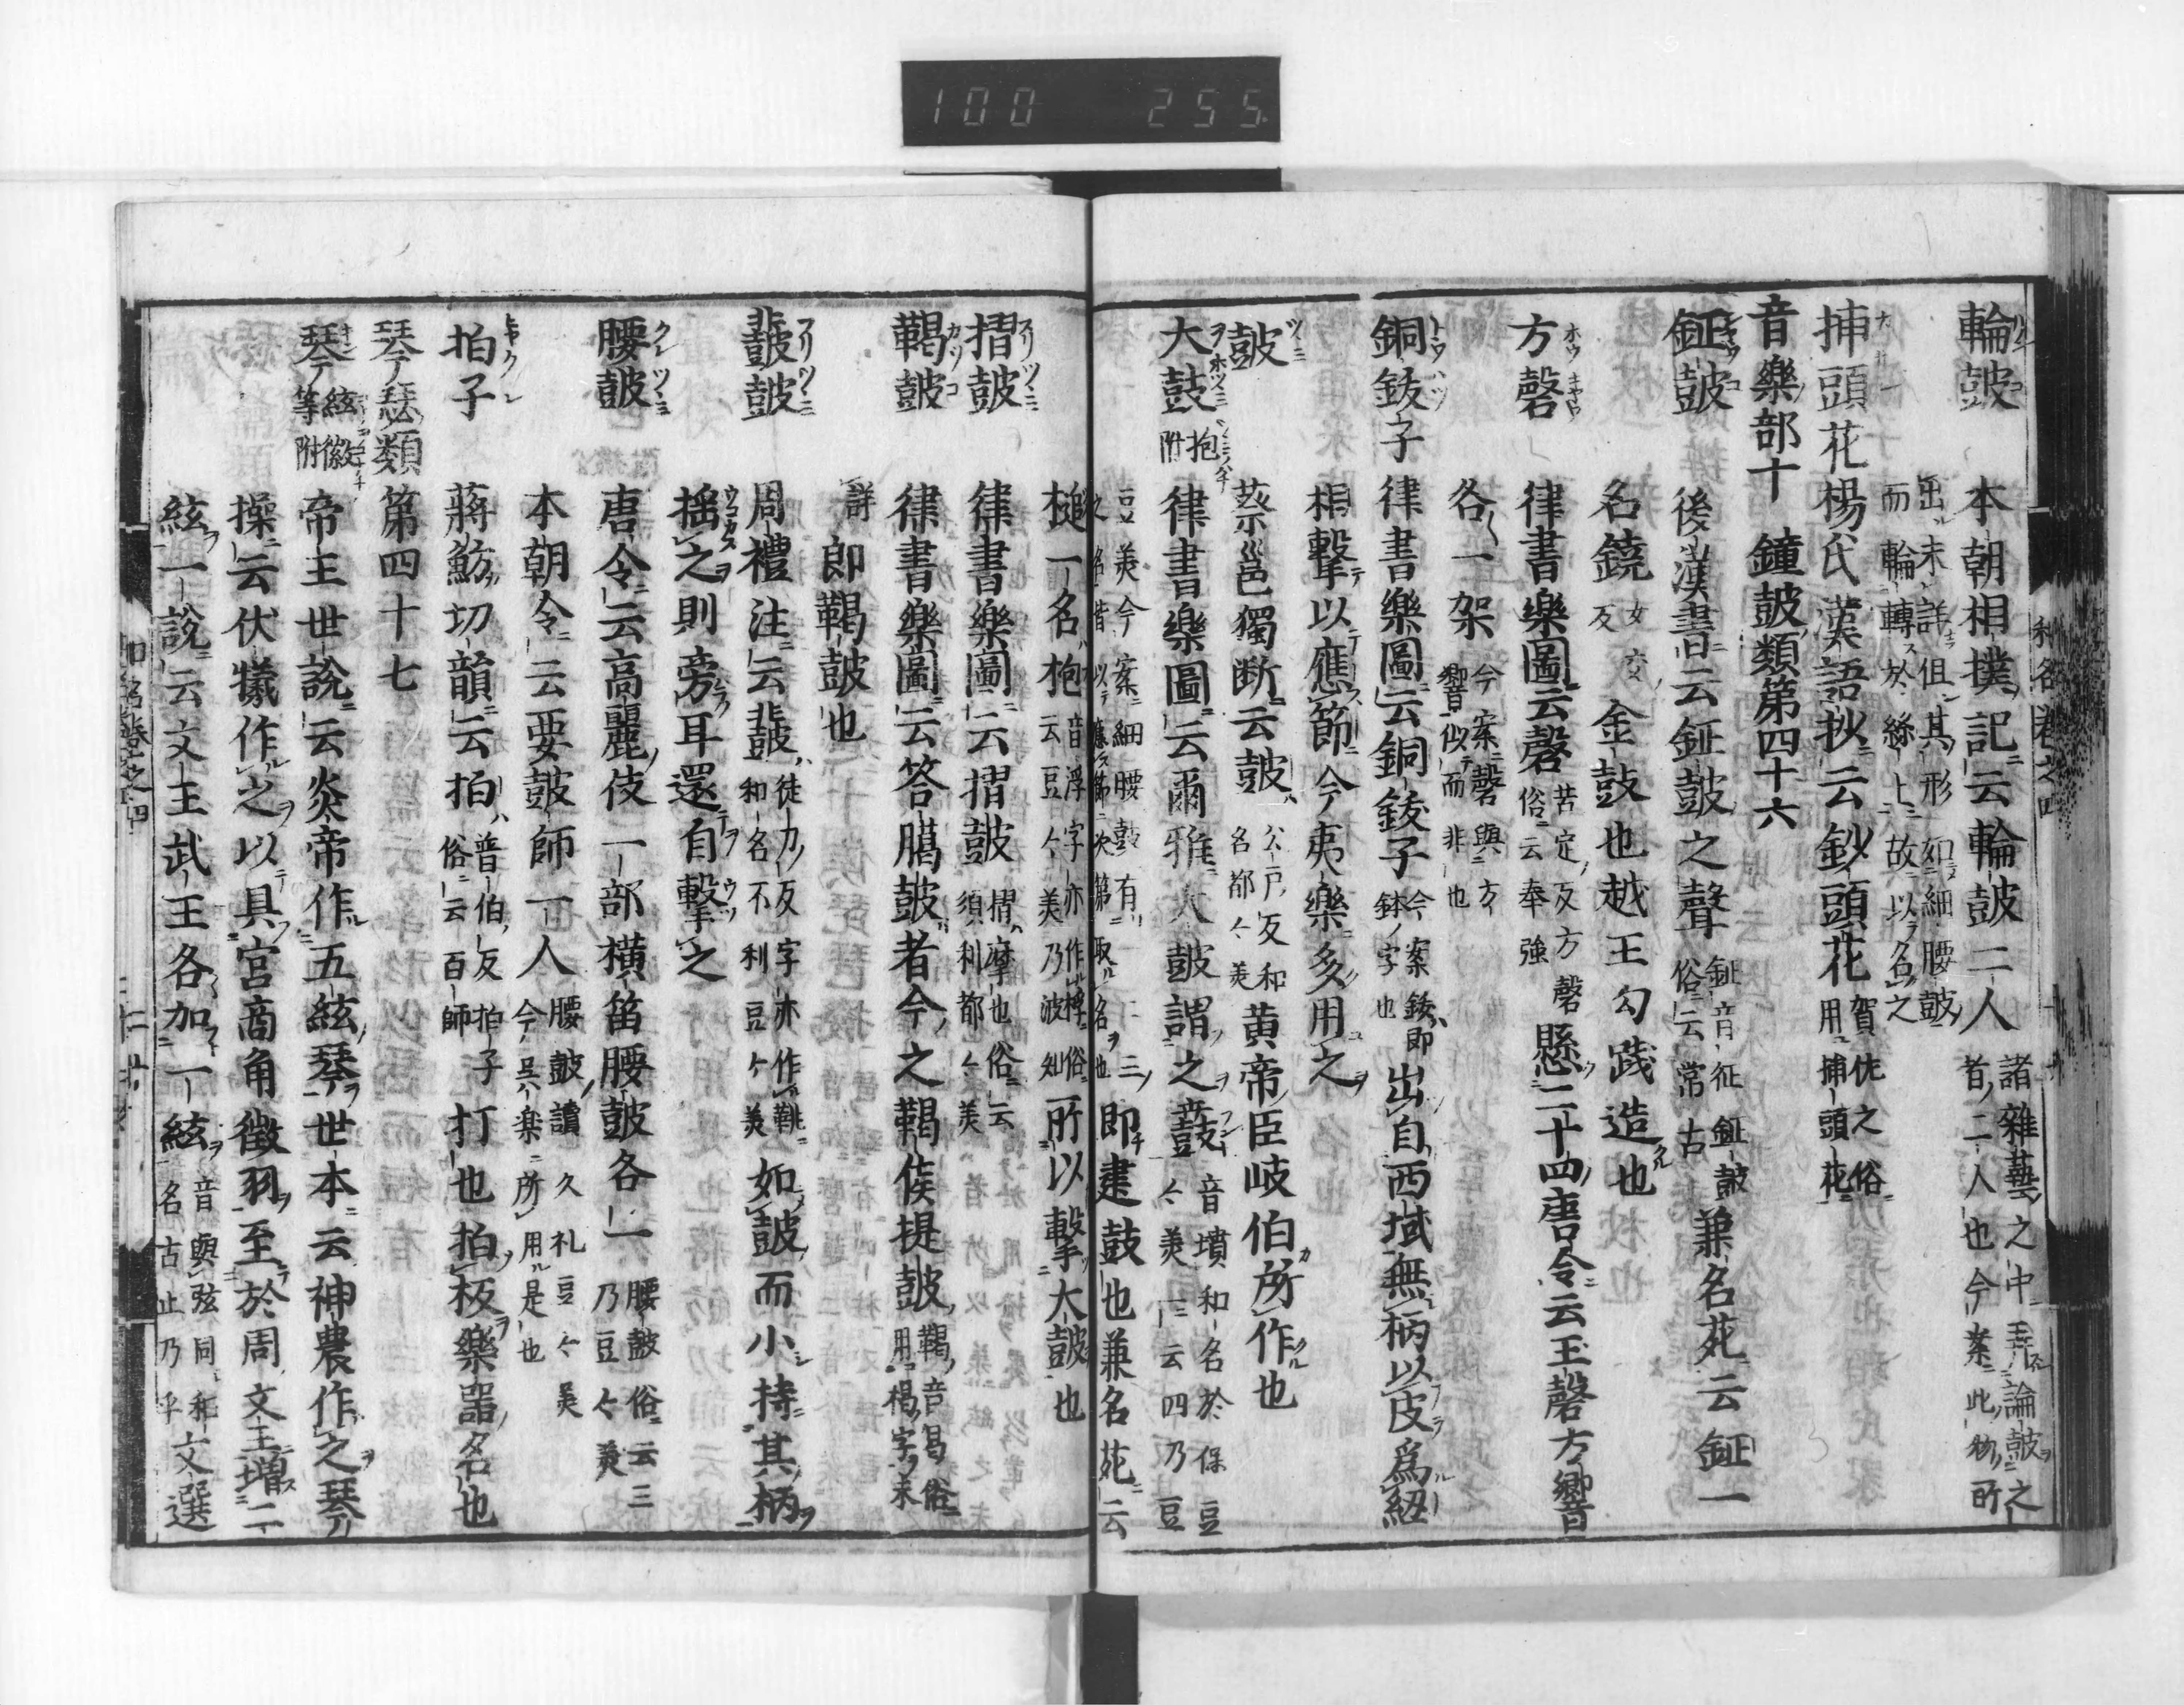 100 255
輪鼓 本朝相撲記云輪鼓二人 諸雜藝之中弄論鼓之
者二人也今案此物所
出未詳但其形如細腰鼓
而輪轉於絲上故以名之
捕頭花 楊氏漢語抄云鈔頭花 賀茂之俗
用捕頭花
音樂部十 鐘鼓類第四十六
鉦鼓 後漢書云鉦鼓之聲 鉦音征鉦鼓
俗云常古 兼名苑云鉦一
名鐃 女交
反 金鼓也越王勾踐造也
方磬 律書樂圖云磬 苦定反方磬
俗云奉強 懸二十四唐令云玉磬方響
各一架 今案磬與方
響似而非也
銅鈸子 律書樂圖云銅鈸子 今案鈸即
鉢字也 出自西域無柄以皮為紐
相擊以應節今夷樂多用之
鼓 蔡邕獨断云鼓 公戸反和
名都々美 黄帝臣岐伯所作也
大鼓 抱
附 律書樂圖云爾雅大鼓謂之鼖 音墳和名於保豆
々美一云四乃豆
豆美今案細腰鼓有二三
之名皆以應節次第取名也 即建鼓也兼名苑云
槌一名抱 音浮字亦作桴俗
云豆々美乃波知 所以擊大鼓也
摺鼓 律書樂圖云摺鼓 摺摩也俗云
須利都々美
鞨鼓 律書樂圖云答臈鼓者今之鞨侯提鼓 鞨音曷俗
用楬字未
詳 即鞨鼓也
鼗鼓 周禮注云鼗 徒刀反字亦作鞉
和名不利豆々美 如鼓而小持其柄
搖之則旁耳還自擊之
腰鼓 唐令云高麗伎一部横笛腰鼓各一 腰鼓俗云三
乃豆々美
本朝令云要鼓師一人 腰鼓讀久礼豆々美
今呉楽所用是也
拍子 蔣魴切韻云拍 普伯反拍子
俗云百師 打也拍板樂器名也
琴瑟類 第四十七
琴 絃徽
等附 帝王世説云炎帝作五絃琴世本云神農作之琴
操云伏犠作之以具宮商角徵羽至於周文王增二
絃一説云文王武王各加一絃 音與弦同和
名古止乃乎 文選